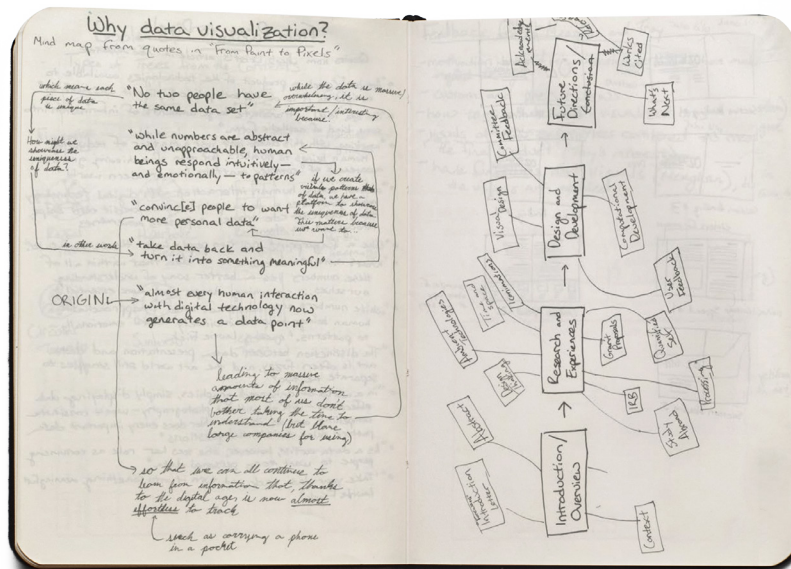 Why data visualization?
Mind map from quotes in "From Paint to Pixels"
which means each
piece of data
is unique
"No two people have
the same data set"
while the data is massive/
overwhelming, it is
important/interesting
because
How might we
showcase the
uniqueness
of data?
"while numbers are abstract
and unapproachable, human
beings respond intuitively—
and emotionally—to patterns"
if we create
visuals patterns
of data, we have a
platform to showcase
the uniqueness of data.
This matters because
we want to...
"convinc[e] people to want
more personal data"
in other words
"take data back and
turn it into something meaningful"
ORIGIN
"almost every human interaction
with digital technology now
generates a data point"
leading to massive
amounts of information
that most of us don't
bother taking the time to
understand (but blame
large companies for using)
so that we can all continue to
learn from information that, thanks
to the digital age, is now almost
effortless to track
such as carrying a phone
in a pocket
Introduction/
Overview
Abstract
Introduction
Letter
Context
Research and
Experiences
Time and
Space
Grant
Proposals
Quantified
Self
User
Feedback
Processing
IRB
Study
Abroad
Design and
Development
Committee
Feedback
Visual
Design
Computational
Development
Future
Directions/
Conclusion
Acknowledg-
ements
Works
Cited
What's
Next